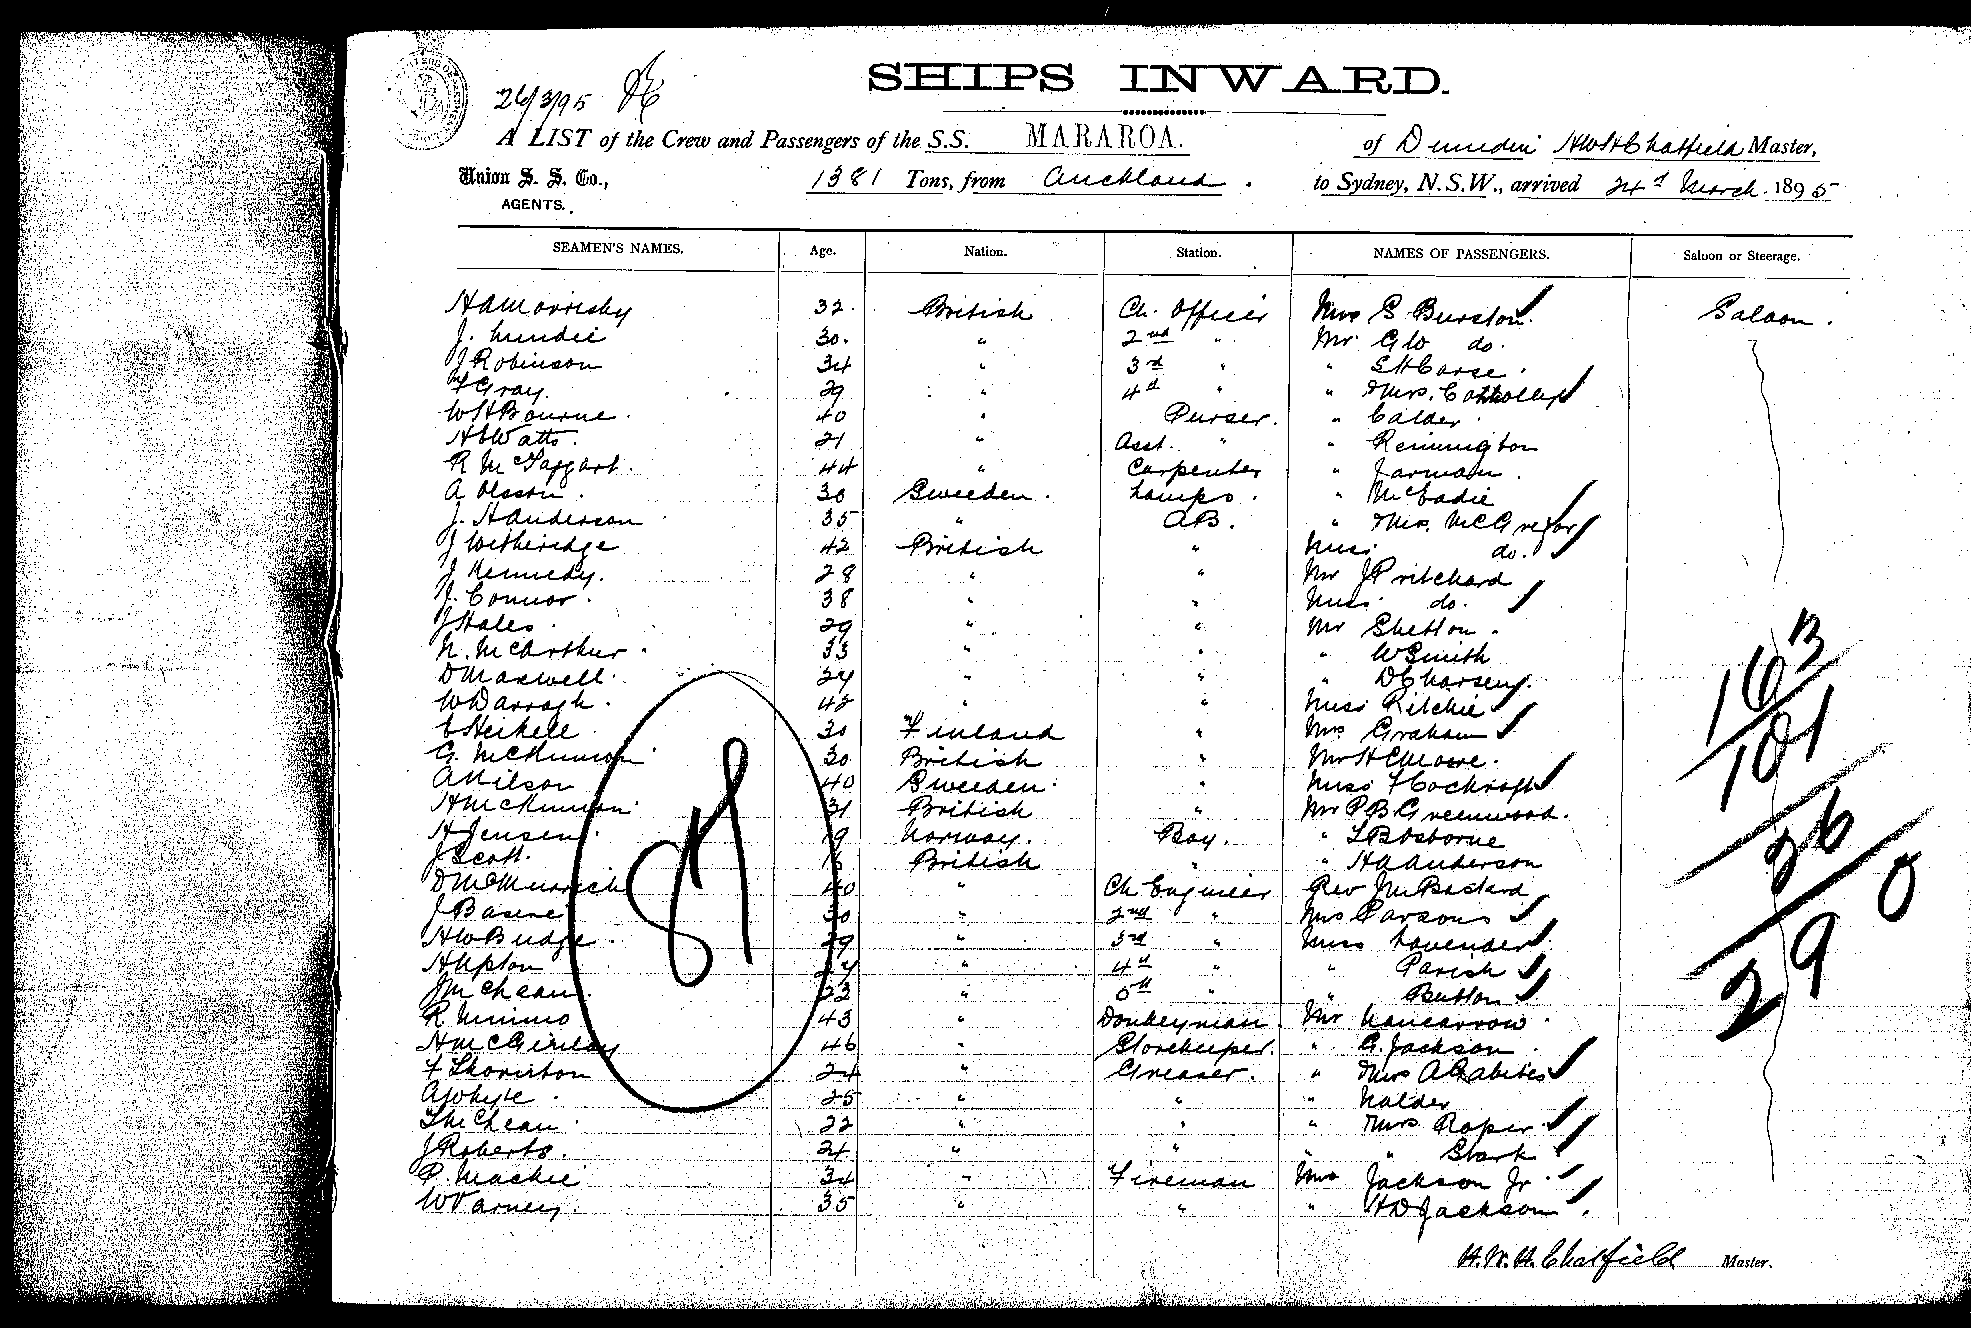 26/3/95
SHIPS INWARD.
A LIST of the Crew and Passengers of the S.S. MARAROA. of Dunedin HWH Chatfield Master,
Union S. S. Co., AGENTS. 1381 Tons, from Auckland. to Sydney, N.S.W., arrived 24th March 1895
SEAMEN'S NAMES. Age. Nation. Station. NAMES OF PASSENGERS. Saloon or Steerage.
H A Morrisby 32 British Ch. Officer Mrs S Burston Saloon.
J. Lundie 30. " 2nd " Mr G W do.
J Robinson 34 " 3rd " " S H Carse
Gray. 29 " 4th " " Mrs.
W H Bourne. 40 " Purser. " Calder
Watts. 21 " Asst. " " Remmington
R McTaggart. 44 " Carpenter " Jarman.
A Olsson. 30 Sweeden. Lamps. " McCadie
J. H Anderson 35 " AB. " Mrs. McGregor
J Witheridge 42 British " Miss do.
J Kennedy. 28 " " Mr J Pritchard
J. Connor. 38 " " Miss do.
J Hales. 29 " " Mr Shetton.
N. McArthur. 33 " " " W Smith
D Maxwell. 24 " "
W Darragh. 42 " " Miss Ritchie
C Heikell 30 Finland " Mrs Graham
G. McKinnon 30 British " Mr H C Moore.
A Nilson 40 Sweeden. " Miss F Cockroft
H McKinnon 31 British " Mr P B Greenwood.
H Jensen. 19 Norway. Boy. " L B Osborne
J Scott. British " " H A Anderson
D McMurrich 40 " Ch Engineer Rev J M Bastard
J 30 " 2nd " Mrs Parsons
H W Budge. 29 " 3rd " Miss Lavender
H Upton 24 " 4th " " Parish
J McLean. 23 " 5th " " Button
R Nimmo 43 " Donkeyman. Mr Nancarrow.
H McGinlay 46 " Storekeeper. " G. Jackson.
F Thornton 24 " Greaser. " Mrs A Gabites
A Whyte. 25 " " " Nalder
McLean. 22 " " " Mrs Roper.
J Roberts. 24 " " " " Stark
P. Mackie 34 " Fireman Mrs Jackson Jr.
W Varney. 35 " " " H D Jackson.
87
163
101
26 0
29
H. W. H. Chatfield Master.